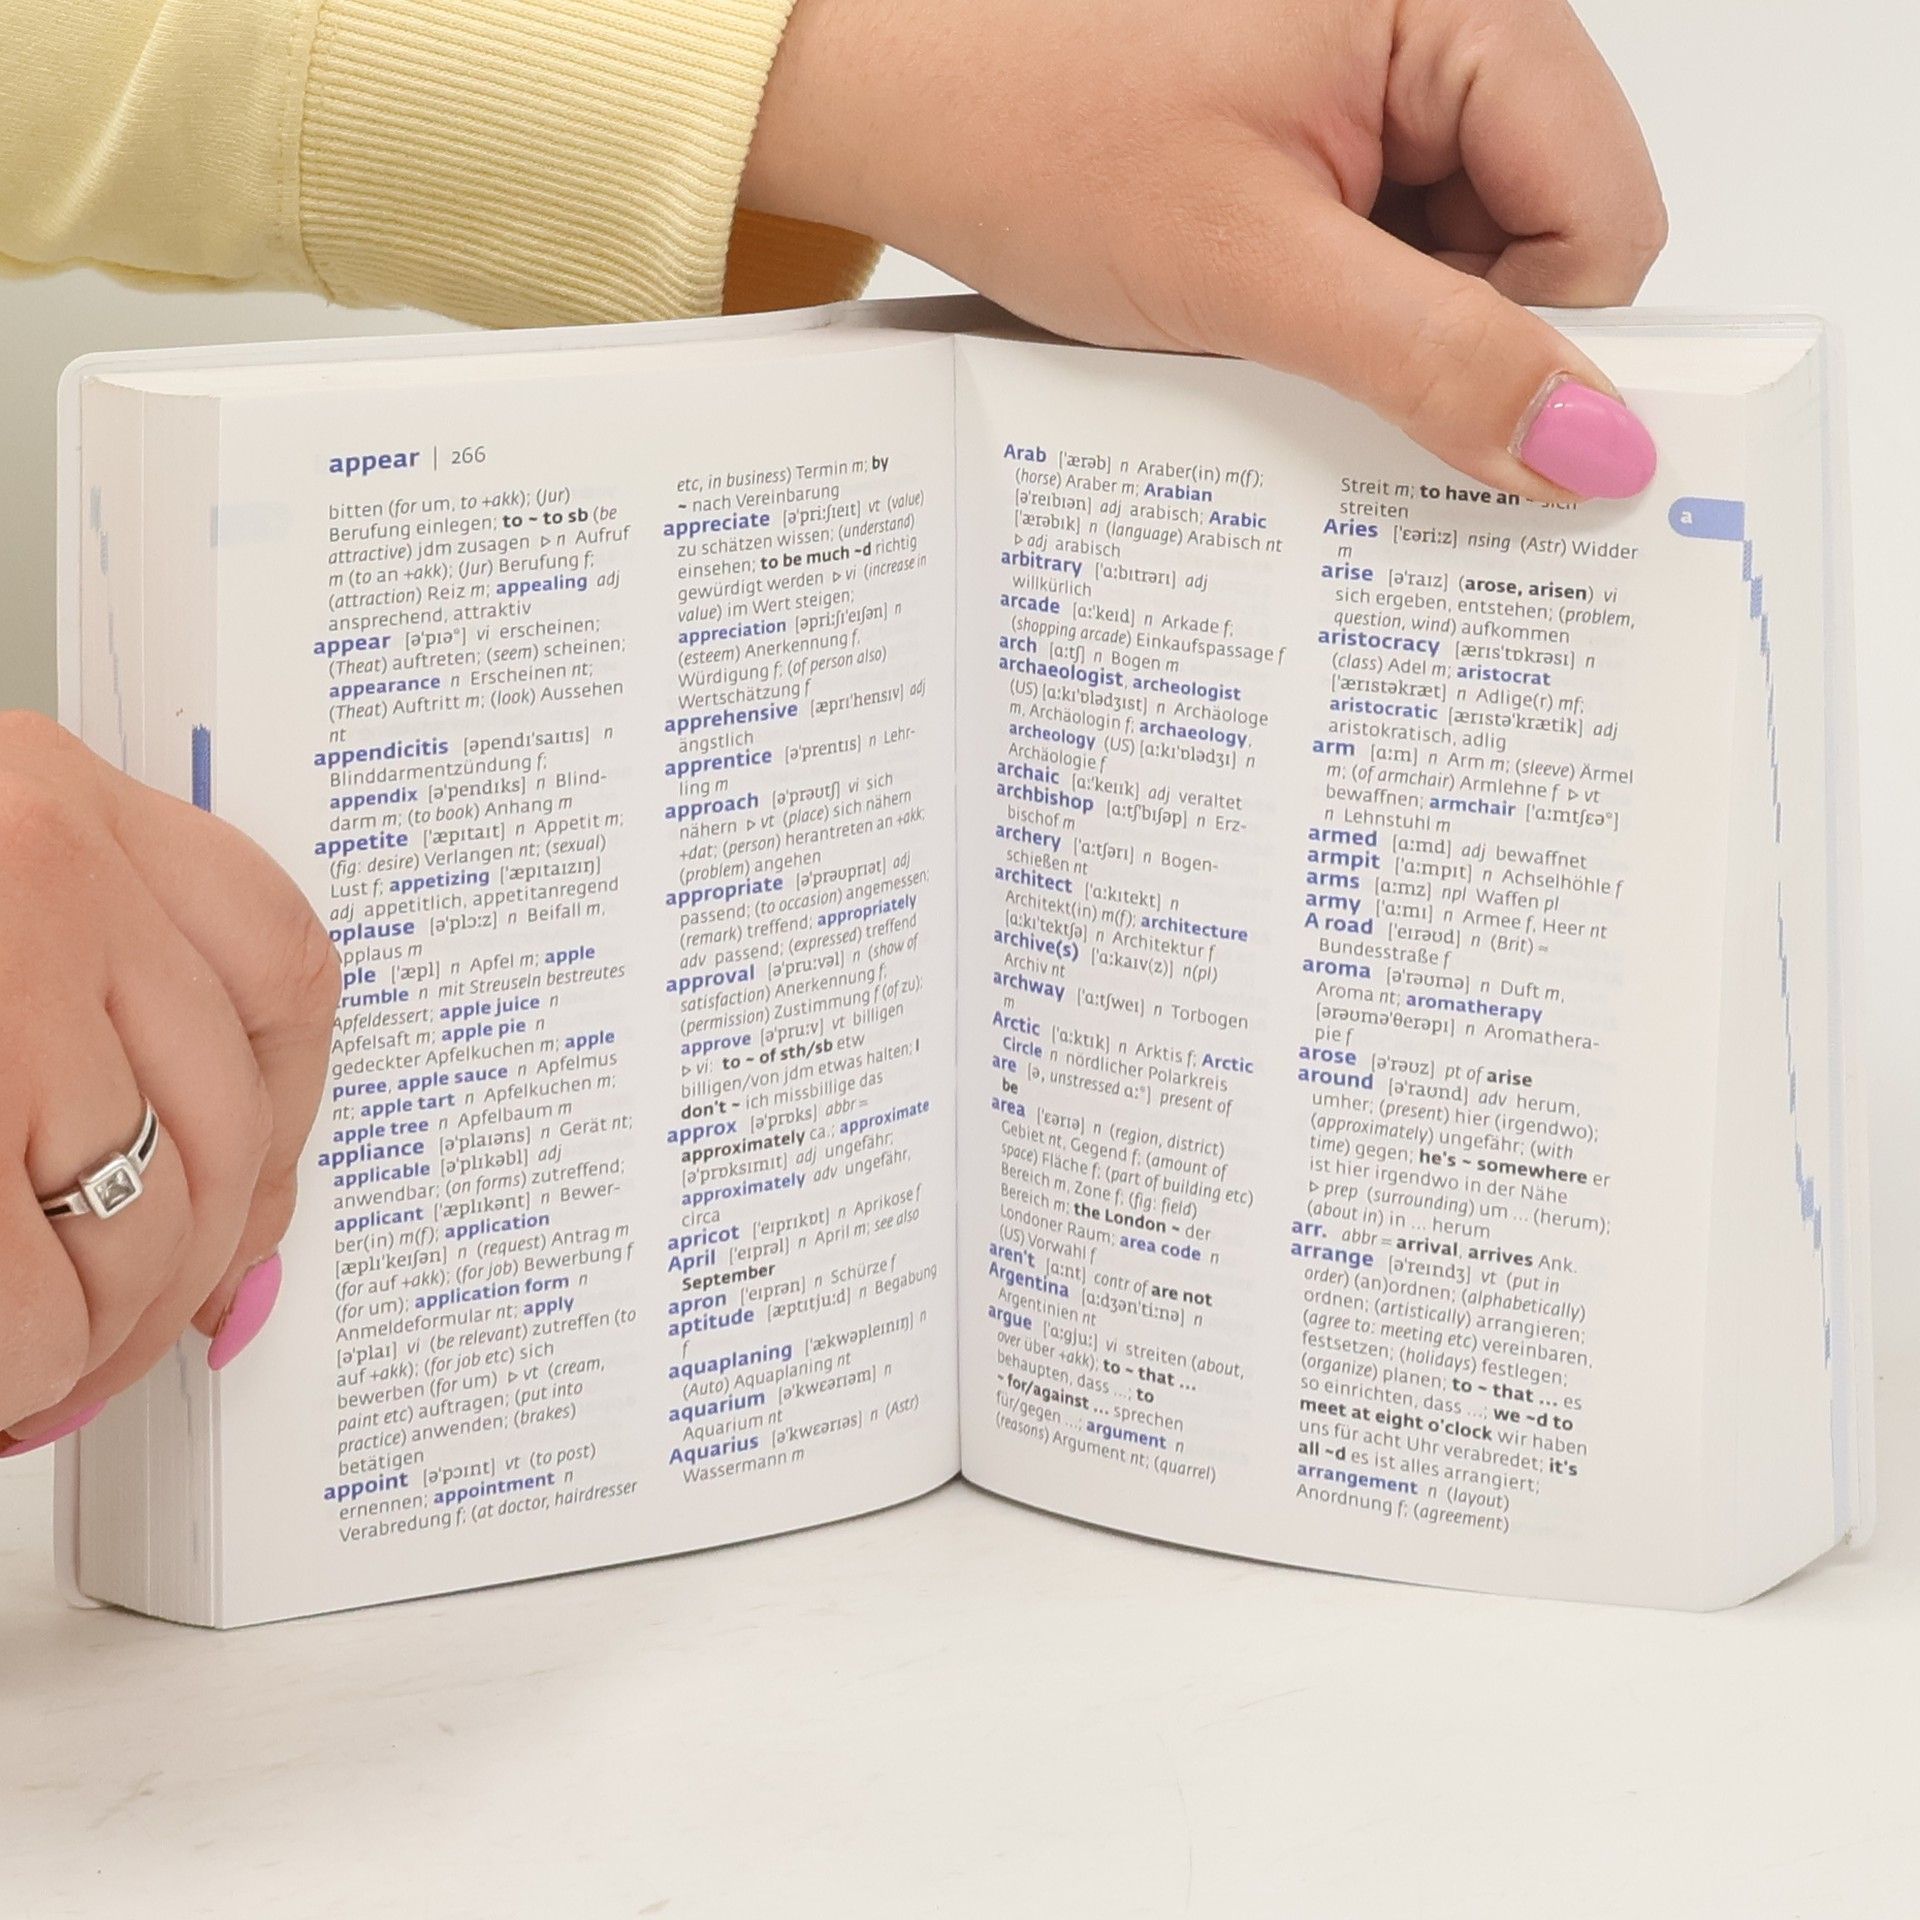 appear | 266
bitten (for um, to +akk); (Jur)
Berufung einlegen; to ~ to sb (be
attractive) jdm zusagen ▷ n Aufruf
m (to an +akk); (Jur) Berufung f;
(attraction) Reiz m; appealing adj
ansprechend, attraktiv
appear [ə'pɪəʳ] vi erscheinen;
(Theat) auftreten; (seem) scheinen;
appearance n Erscheinen nt;
(Theat) Auftritt m; (look) Aussehen
nt
appendicitis [əpendɪ'saɪtɪs] n
Blinddarmentzündung f;
appendix [ə'pendɪks] n Blind-
darm m; (to book) Anhang m
appetite ['æpɪtaɪt] n Appetit m;
(fig: desire) Verlangen nt; (sexual)
Lust f; appetizing ['æpɪtaɪzɪŋ]
adj appetitlich, appetitanregend
pplause [ə'plɔːz] n Beifall m,
pplaus m
ple ['æpl] n Apfel m; apple
rumble n mit Streuseln bestreutes
Apfeldessert; apple juice n
Apfelsaft m; apple pie n
gedeckter Apfelkuchen m; apple
puree, apple sauce n Apfelmus
nt; apple tart n Apfelkuchen m;
apple tree n Apfelbaum m
appliance [ə'plaɪəns] n Gerät nt;
applicable [ə'plɪkəbl] adj
anwendbar; (on forms) zutreffend;
applicant ['æplɪkənt] n Bewer-
ber(in) m(f); application
[æplɪ'keɪʃən] n (request) Antrag m
(for auf +akk); (for job) Bewerbung f
(for um); application form n
Anmeldeformular nt; apply
[ə'plaɪ] vi (be relevant) zutreffen (to
auf +akk); (for job etc) sich
bewerben (for um) ▷ vt (cream,
paint etc) auftragen; (put into
practice) anwenden; (brakes)
betätigen
appoint [ə'pɔɪnt] vt (to post)
ernennen; appointment n
Verabredung f; (at doctor, hairdresser
etc, in business) Termin m; by
~ nach Vereinbarung
appreciate [ə'priːʃɪeɪt] vt (value)
zu schätzen wissen; (understand)
einsehen; to be much ~d richtig
gewürdigt werden ▷ vi (increase in
value) im Wert steigen;
appreciation [əpriːʃɪ'eɪʃən] n
(esteem) Anerkennung f,
Würdigung f; (of person also)
Wertschätzung f
apprehensive [æprɪ'hensɪv] adj
ängstlich
apprentice [ə'prentɪs] n Lehr-
ling m
approach [ə'prəʊtʃ] vi sich
nähern ▷ vt (place) sich nähern
+dat; (person) herantreten an +akk;
(problem) angehen
appropriate [ə'prəʊprɪət] adj
passend; (to occasion) angemessen;
(remark) treffend; appropriately
adv passend; (expressed) treffend
approval [ə'pruːvəl] n (show of
satisfaction) Anerkennung f;
(permission) Zustimmung f (of zu);
approve [ə'pruːv] vt billigen
▷ vi: to ~ of sth/sb etw
billigen/von jdm etwas halten; I
don't ~ ich missbillige das
approx [ə'prɒks] abbr =
approximately ca.; approximate
[ə'prɒksɪmɪt] adj ungefähr;
approximately adv ungefähr,
circa
apricot ['eɪprɪkɒt] n Aprikose f
April ['eɪprəl] n April m; see also
September
apron ['eɪprən] n Schürze f
aptitude [æptɪtjuːd] n Begabung
f
aquaplaning ['ækwəpleɪnɪŋ] n
(Auto) Aquaplaning nt
aquarium [ə'kwɛərɪəm] n
Aquarium nt
Aquarius [ə'kwɛərɪəs] n (Astr)
Wassermann m
Arab ['ærəb] n Araber(in) m(f);
(horse) Araber m; Arabian
[ə'reɪbɪən] adj arabisch; Arabic
['ærəbɪk] n (language) Arabisch nt
▷ adj arabisch
arbitrary ['ɑːbɪtrərɪ] adj
willkürlich
arcade [ɑː'keɪd] n Arkade f;
(shopping arcade) Einkaufspassage f
arch [ɑːtʃ] n Bogen m
archaeologist, archeologist
(US) [ɑːkɪ'ɒlədʒɪst] n Archäologe
m, Archäologin f; archaeology,
archeology (US) [ɑːkɪ'ɒlədʒɪ] n
Archäologie f
archaic [ɑː'keɪɪk] adj veraltet
archbishop [ɑːtʃ'bɪʃəp] n Erz-
bischof m
archery ['ɑːtʃərɪ] n Bogen-
schießen nt
architect ['ɑːkɪtekt] n
Architekt(in) m(f); architecture
[ɑːkɪ'tektʃə] n Architektur f
archive(s) ['ɑːkaɪv(z)] n(pl)
Archiv nt
archway ['ɑːtʃweɪ] n Torbogen
m
Arctic ['ɑːktɪk] n Arktis f; Arctic
Circle n nördlicher Polarkreis
are [ə, unstressed ɑːʳ] present of
be
area ['ɛərɪə] n (region, district)
Gebiet nt, Gegend f; (amount of
space) Fläche f; (part of building etc)
Bereich m, Zone f; (fig: field)
Bereich m; the London ~ der
Londoner Raum; area code n
(US) Vorwahl f
aren't [ɑːnt] contr of are not
Argentina [ɑːdʒən'tiːnə] n
Argentinien nt
argue ['ɑːgjuː] vi streiten (about,
over über +akk); to ~ that ...
behaupten, dass ...; to
~ for/against ... sprechen
für/gegen ...; argument n
(reasons) Argument nt; (quarrel)
Streit m; to have an ~ sich
streiten
a
Aries ['ɛəriːz] nsing (Astr) Widder
m
arise [ə'raɪz] (arose, arisen) vi
sich ergeben, entstehen; (problem,
question, wind) aufkommen
aristocracy [ærɪs'tɒkrəsɪ] n
(class) Adel m; aristocrat
['ærɪstəkræt] n Adlige(r) mf;
aristocratic [ærɪstə'krætik] adj
aristokratisch, adlig
arm [ɑːm] n Arm m; (sleeve) Ärmel
m; (of armchair) Armlehne f ▷ vt
bewaffnen; armchair ['ɑːmtʃɛəʳ]
n Lehnstuhl m
armed [ɑːmd] adj bewaffnet
armpit ['ɑːmpɪt] n Achselhöhle f
arms [ɑːmz] npl Waffen pl
army ['ɑːmɪ] n Armee f, Heer nt
A road ['eɪrəʊd] n (Brit) ≈
Bundesstraße f
aroma [ə'rəʊmə] n Duft m,
Aroma nt; aromatherapy
[ərəʊmə'θerəpɪ] n Aromathera-
pie f
arose [ə'rəʊz] pt of arise
around [ə'raʊnd] adv herum,
umher; (present) hier (irgendwo);
(approximately) ungefähr; (with
time) gegen; he's ~ somewhere er
ist hier irgendwo in der Nähe
▷ prep (surrounding) um ... (herum);
(about in) in ... herum
arr. abbr = arrival, arrives Ank.
arrange [ə'reɪndʒ] vt (put in
order) (an)ordnen; (alphabetically)
ordnen; (artistically) arrangieren;
(agree to: meeting etc) vereinbaren,
festsetzen; (holidays) festlegen;
(organize) planen; to ~ that ... es
so einrichten, dass ...; we ~d to
meet at eight o'clock wir haben
uns für acht Uhr verabredet; it's
all ~d es ist alles arrangiert;
arrangement n (layout)
Anordnung f; (agreement)